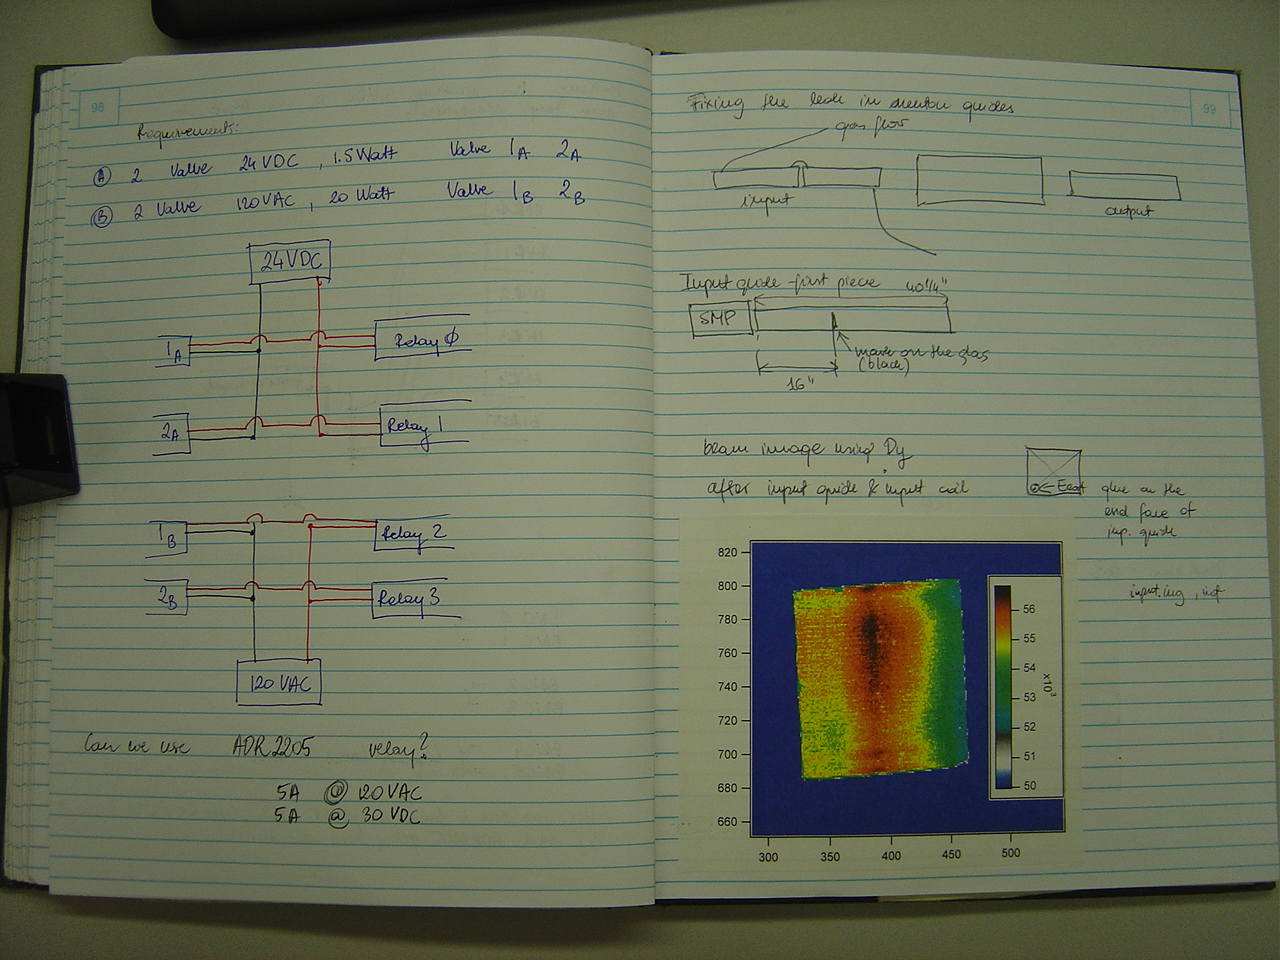 98
Requirement:
Ⓐ 2 Valve 24 VDC, 1.5 Watt Valve 1A 2A
Ⓑ 2 Valve 120 VAC, 20 Watt Valve 1B 2B
24 VDC
1A
Relay ϕ
2A
Relay 1
1B
Relay 2
2B
Relay 3
120 VAC
Can we use ADR 2205 relay?
5A @ 120 VAC
5A @ 30 VDC
99
Fixing the leak in neutron guides
gas flow
input
output
Input guide first piece 40 1/4"
SMP
mark on the glas
(black)
16"
beam image using Dy
after input guide & input coil
East
glue on the
end face of
inp. guide
820
800
780
760
740
720
700
680
660
300 350 400 450 500
56
55
54
53
52
51
50
x10³
input.img